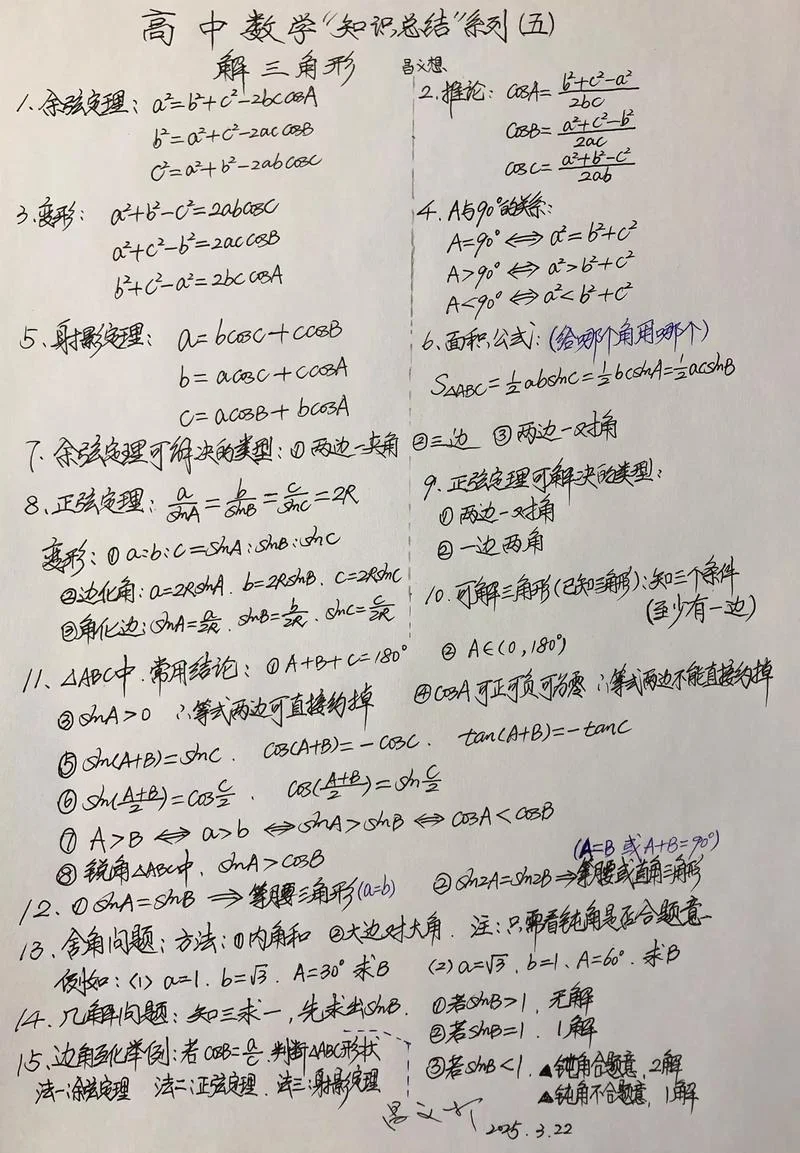 高中数学“知识总结”系列(五)
解三角形 吕文想
1、余弦定理: a²=b²+c²-2bccosA
b²=a²+c²-2accosB
c²=a²+b²-2abcosC
2.推论: cosA=(b²+c²-a²)/2bc
cosB=(a²+c²-b²)/2ac
cosC=(a²+b²-c²)/2ab
3.变形: a²+b²-c²=2abcosC
a²+c²-b²=2accosB
b²+c²-a²=2bccosA
4.A与90°的关系:
A=90°⟺a²=b²+c²
A>90°⟺a²>b²+c²
A<90°⟺a²<b²+c²
5、射影定理: a=bcosC+ccosB
b=acosC+ccosA
c=acosB+bcosA
6、面积公式:(给哪个角用哪个)
S△ABC=½absinC=½bcsinA=½acsinB
7、余弦定理可解决的类型:①两边一夹角 ②三边 ③两边一对角
8、正弦定理: a/sinA=b/sinB=c/sinC=2R
变形:①a:b:c=sinA:sinB:sinC
②边化角:a=2RsinA.b=2RsinB.c=2RsinC
③角化边:sinA=a/2R.sinB=b/2R.sinC=c/2R
9、正弦定理可解决的类型:
①两边一对角
②一边两角
10.可解三角形(已知三角形):知三个条件
(至少有一边)
11、△ABC中.常用结论: ①A+B+C=180° ②A∈(0,180°)
③sinA>0 ∴等式两边可直接约掉 ④cosA可正可负可为零 ∴等式两边不能直接约掉
⑤sin(A+B)=sinC. cos(A+B)=-cosC. tan(A+B)=-tanC
⑥sin(A+B/2)=cosC/2. cos(A+B/2)=sinC/2
⑦A>B⟺a>b⟺sinA>sinB⟺cosA<cosB
⑧锐角△ABC中.sinA>cosB
(A=B或A+B=90°)
12.①sinA=sinB⟹等腰三角形(a=b) ②sin2A=sin2B⟹等腰或直角三角形
13、舍角问题:方法:①内角和 ②大边对大角. 注:只需看钝角是否合题意
例如:(1)a=1.b=√3.A=30°求B (2)a=√3.b=1、A=60°.求B
14.几解问题:知三求一,先求出sinB. ①若sinB>1,无解
②若sinB=1.1解
③若sinB<1.▲钝角合题意,2解
▲钝角不合题意,1解
15、边角互化举例:若cosB=a/c.判断△ABC形状
法一:余弦定理 法二:正弦定理.法三:射影定理
2025.3.22